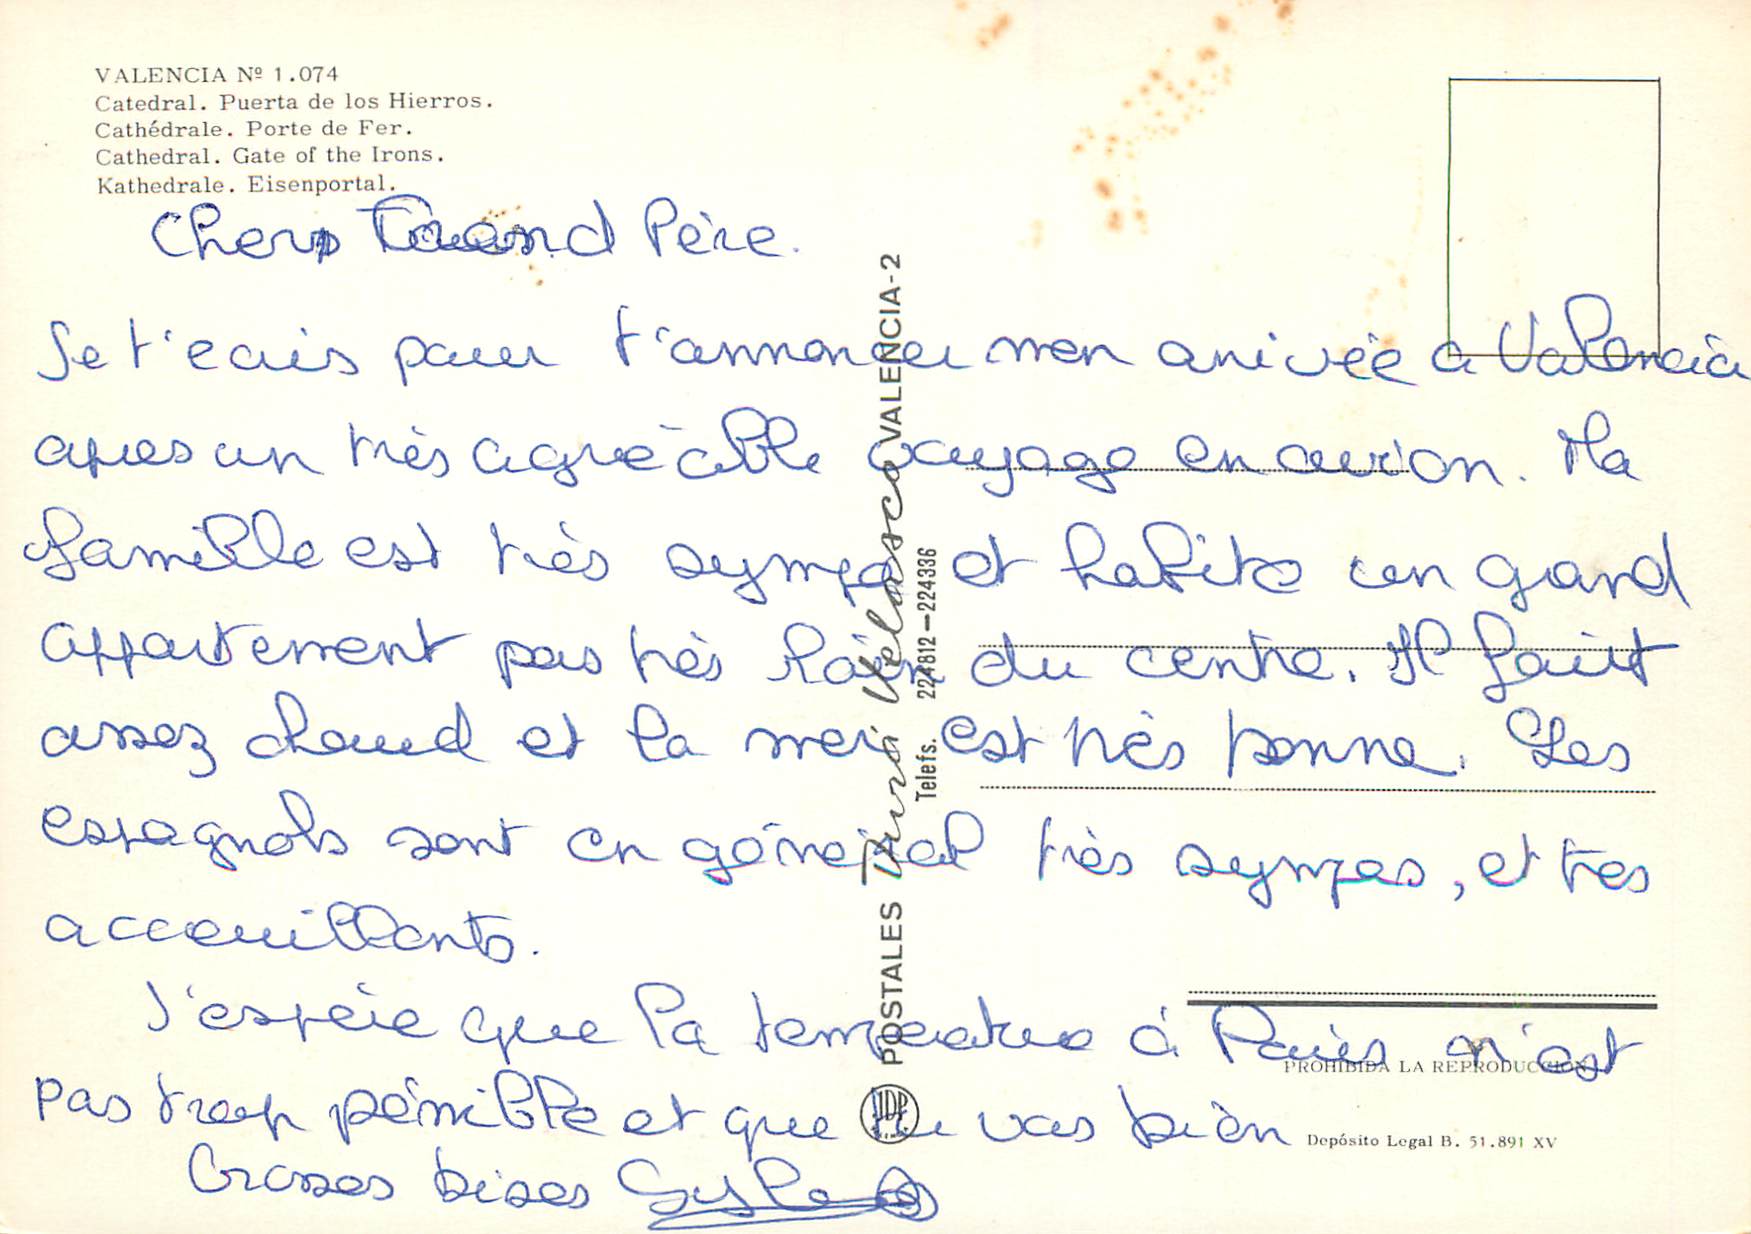 VALENCIA Nº 1.074
Catedral. Puerta de los Hierros.
Cathédrale. Porte de Fer.
Cathedral. Gate of the Irons.
Kathedrale. Eisenportal.
Cher Grand Père.
Je t'ecris pour t'annoncer mon arrivée a Valencia
apres un très agréable voyage en avion. Ma
famille est très sympa et habite un grand
appartement pas très loin du centre. Il fait
assez chaud et la mer est très bonne. Les
espagnols sont en général très sympas, et tres
accueillants.
J'espére que la temperatue à Paris n'est
pas trop pénible et que tu vas bièn
Grosses bises
POSTALES Durá Velasco VALENCIA-2
Telefs. 224812-224336
PROHIBIDA LA REPRODUCCION
Depósito Legal B. 51.891 XV